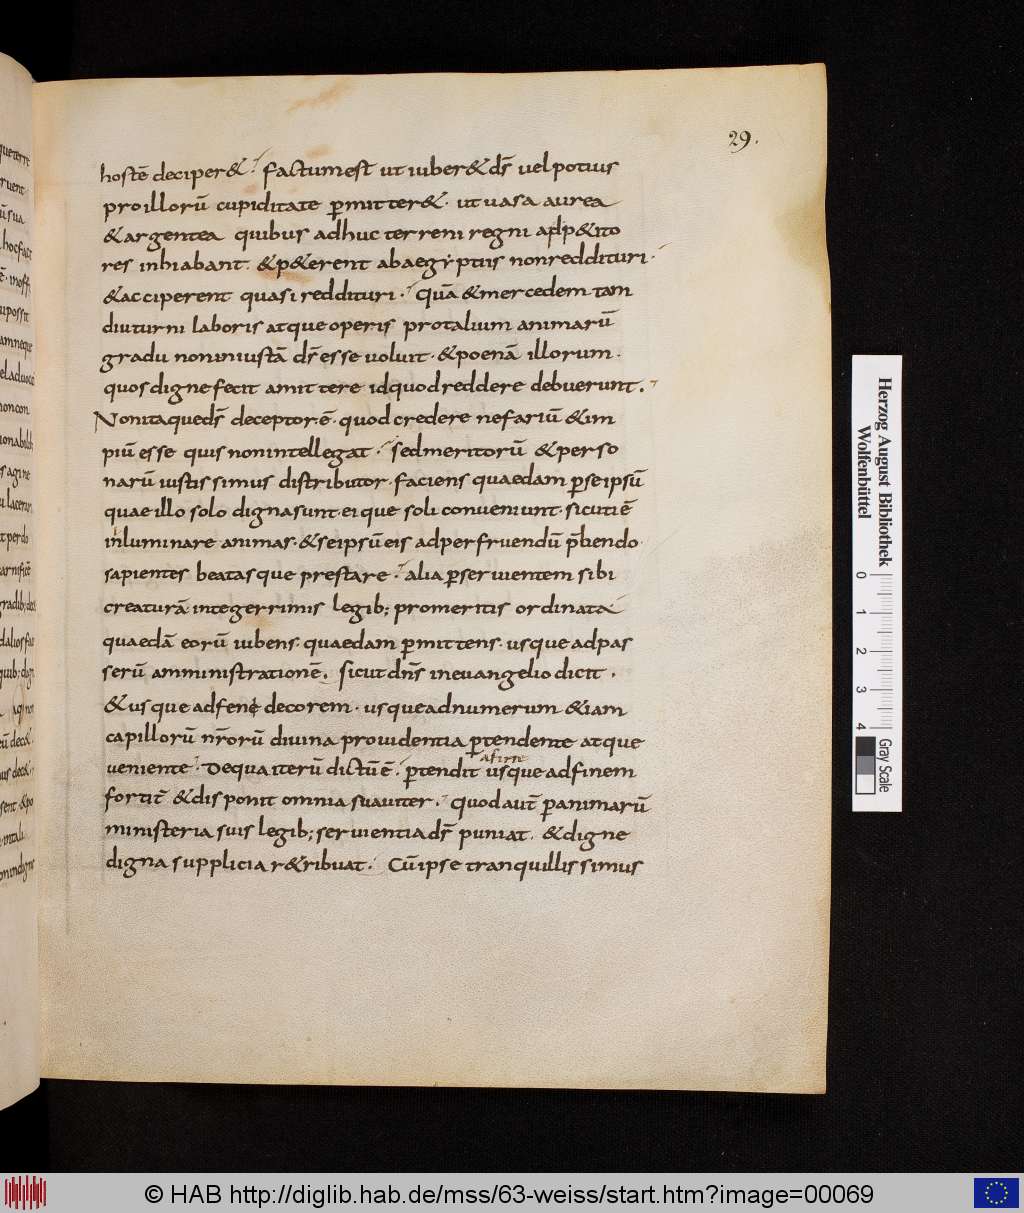 29.
hostē deciper&. factumest ut iuber& ds̄ uel potius
proillorū cupiditate p̄mitter&. ut uasa aurea
& argentea quibus adhuc terreni regni adp&ito
res inhiabant. &p&erent abaegyptiis nonreddituri.
& acciperent quasi reddituri. quā & mercedem tam
diuturni laboris atque operis protalium animarū
gradu noniniustā ds̄ esse uoluit. & poenā illorum.
quos digne fecit amittere idquod reddere debuerunt.
Nonitaqueds̄ deceptor.ē. quod credere nefariū & im
piū esse quis nonintellegat. sedmeritorū & perso
narū iustissimus distributor. faciens quaedam p̄seipsū
quae illo solo digna sunt. eique soli conueniunt. sicuti ē
inluminare animas. & seipsū eis adperfruendū p̄bendo
sapientes beatasque prestare. alia p̄seruientem sibi
creaturā integerrimis legib; promeritis ordinata
quaedā eorū iubens. quaedam p̄mittens. usque adpas
serū amministrationē. sicut dn̄s ineuangelio dicit.
& usque adfeni decorem. usqueadnumerum & iam
capillorū nr̄orū diuina prouidentia p̄tendente atque
ueniente. Dequa iterū dictū ē. p̄tendit usque adfinem
afine
fortit̄ & disponit omnia suauiter. quodaut̄ p̄animarū
ministeria suis legib; seruientia ds̄ puniat. & digne
digna supplicia r&ribuat. Cū ipse tranquillissimus
que terre
ruent
ū sua
hocfact
possit
amneque
non con
s agine
t perdo
gradib;
dalios fac
quib; dign
decā.
sent. & po
initali
non indigne
Herzog August Bibliothek
Wolfenbüttel
0 1 2 3 4
Gray Scale
© HAB http://diglib.hab.de/mss/63-weiss/start.htm?image=00069